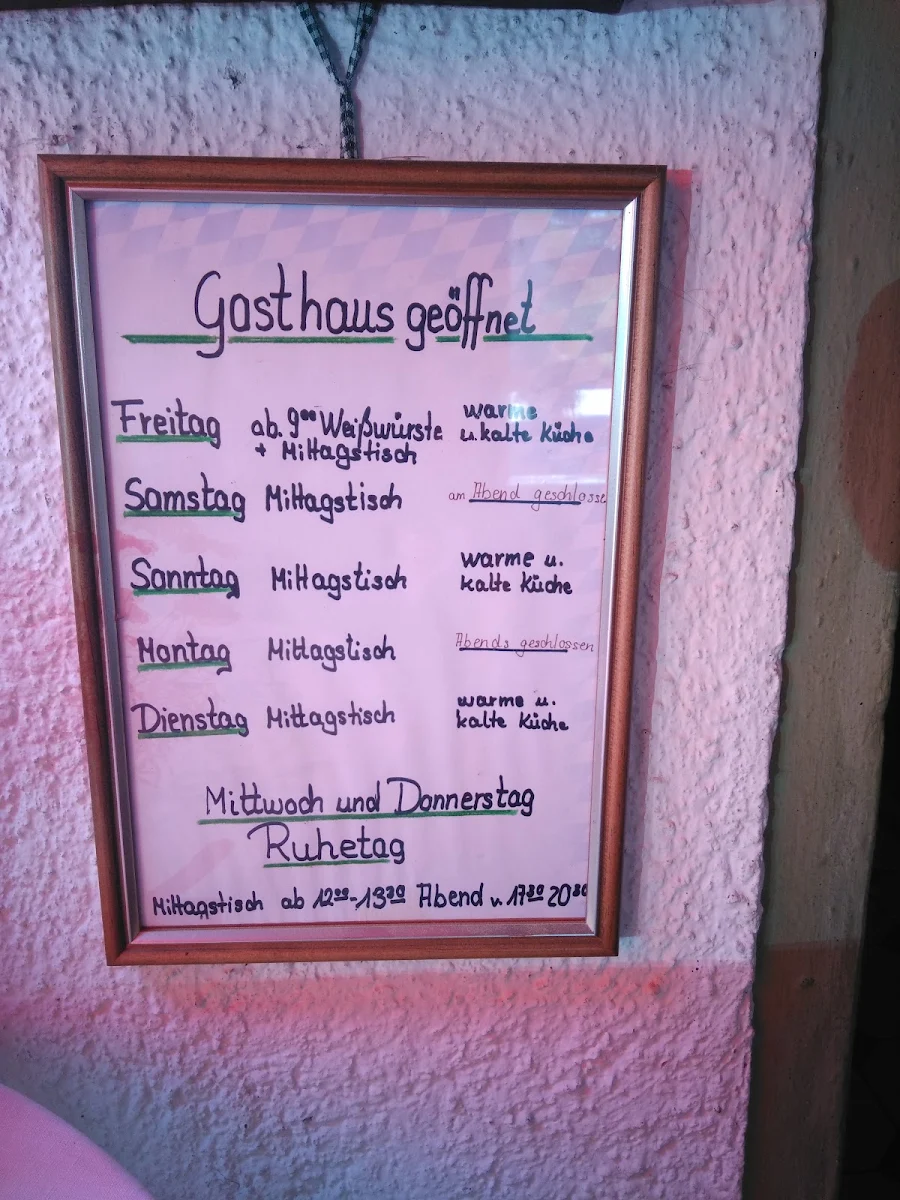 Gasthaus geöffnet
Freitag ab. 9⁰⁰ Weißwürste warme
+ Mittagstisch u. kalte Küche
Samstag Mittagstisch am Abend geschlosse
Sonntag Mittagstisch warme u.
kalte Küche
Montag Mittagstisch Abends geschlossen
Dienstag Mittagstisch warme u.
kalte Küche
Mittwoch und Donnerstag
Ruhetag
Mittagstisch ab 12⁰⁰-13³⁰ Abend v. 17³⁰ 20³⁰